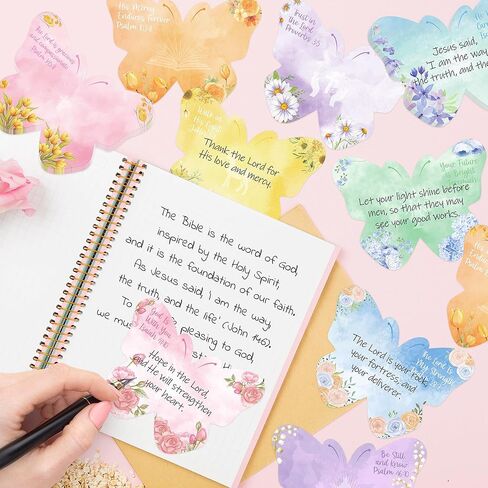 The Lord is gracious
and compassionate
Psalm 145:8
His Mercy
Endures Forever
Psalm 107:1
Trust in
the Lord
Proverbs 3:5
Jesus said,
'I am the way
the truth, and the
Thank the Lord for
His love and mercy.
Your Future
is Bright
Let your light shine before
men, so that they may
see your good works.
The Bible is the word of God,
inspired by the Holy Spirit,
and it is the foundation of our faith.
As Jesus said, 'I am the way,
the truth and the life' (John 14:6).
To pleasing to God,
we must
God is
With You
Hope in the Lord,
and He will strengthen
your heart.
The Lord is
My Strength
The Lord is your rock,
your fortress, and
your deliverer.
Be Still
and Know
Psalm 46:10